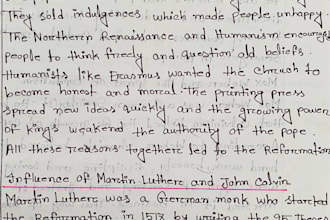 They sold indulgences, which made people unhappy
The Northern Renaissance and Humanism encourag
people to think freely and question old beliefs.
Humanists like Erasmus wanted the chruch to
become honest and moral. The printing press
spread new ideas quickly and the growing power
of kings weakend the authority of the pope.
All these reasons together led to the Reformation
Influence of Martin Luthere and John Calvin
Martin Luthere was a Gereman monk who starte
the Reformation in 1517 by writing the 95 Theses